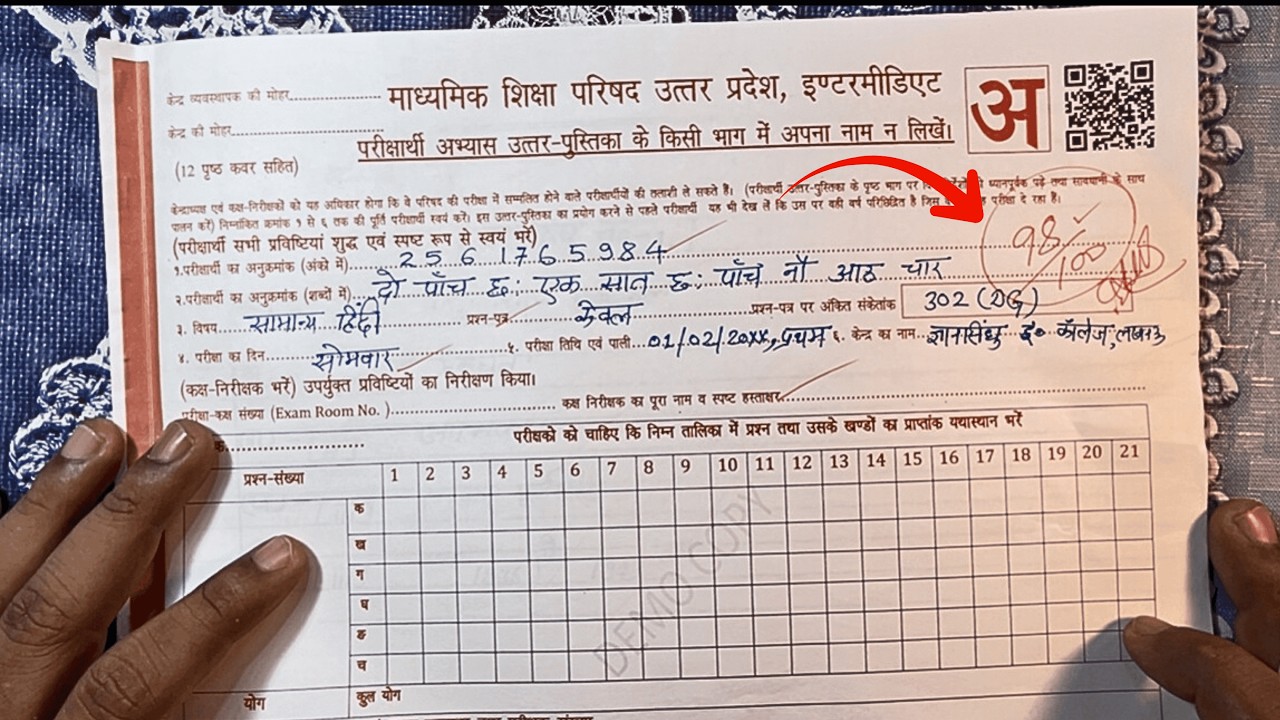 केन्द्र व्यवस्थापक की मोहर
माध्यमिक शिक्षा परिषद उत्तर प्रदेश, इण्टरमीडिएट
अ
केन्द्र की मोहर
परीक्षार्थी अभ्यास उत्तर-पुस्तिका के किसी भाग में अपना नाम न लिखें।
(12 पृष्ठ कवर सहित)
केन्द्राध्यक्ष एवं कक्ष-निरीक्षकों को यह अधिकार होगा कि वे परिषद की परीक्षा में सम्मलित होने वाले परीक्षार्थीयों की तलाशी ले सकते हैं। (परीक्षार्थी उत्तर-पुस्तिका के पृष्ठ भाग पर ध्यानपूर्वक पढ़े तथा सावधानी के साथ
पालन करें) निम्नांकित क्रमांक १ से ६ तक की पूर्ति परीक्षार्थी स्वयं करें। इस उत्तर-पुस्तिका का प्रयोग करने से पहले परीक्षार्थी यह भी देख लें कि उस पर वही वर्ष परिछिद्रित है जिस परीक्षा दे रहा है।
(परीक्षार्थी सभी प्रविष्टियां शुद्ध एवं स्पष्ट रूप से स्वयं भरें)
98/100
१.परीक्षार्थी का अनुक्रमांक (अंको में) 2 5 6 1 7 6 5 9 8 4
२.परीक्षार्थी का अनुक्रमांक (शब्दों में) दो पाँच छः एक सात छः पाँच नौ आठ चार
३. विषय सामान्य हिंदी प्रश्न-पत्र केवल प्रश्न-पत्र पर अंकित संकेतांक 302 (DG)
४. परीक्षा का दिन सोमवार ५. परीक्षा तिथि एवं पाली 01/02/20XX, प्रथम ६. केन्द्र का नाम ज्ञानसिंधु इ० कॉलेज, लखनऊ
(कक्ष-निरीक्षक भरें) उपर्युक्त प्रविष्टियों का निरीक्षण किया।
परीक्षा-कक्ष संख्या (Exam Room No. ) कक्ष निरीक्षक का पूरा नाम व स्पष्ट हस्ताक्षर
परीक्षको को चाहिए कि निम्न तालिका में प्रश्न तथा उसके खण्डों का प्राप्तांक यथास्थान भरें
प्रश्न-संख्या 1 2 3 4 5 6 7 8 9 10 11 12 13 14 15 16 17 18 19 20 21
क
ख
ग
घ
ङ
च
DEMO COPY
योग कुल योग